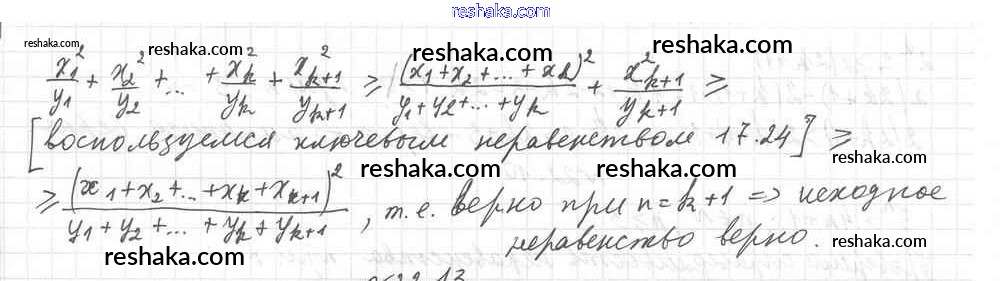 reshaka.com
reshaka.com reshaka.com reshaka.com reshaka.com
x₁²/y₁ + x₂²/y₂ + ... + x_k²/y_k + x_{k+1}²/y_{k+1} ≥ (x₁+x₂+...+x_k)²/(y₁+y₂+...+y_k) + x²_{k+1}/y_{k+1} ≥
[воспользуемся ключевым неравенством 17.24] ≥
reshaka.com reshaka.com reshaka.com
≥ (x₁+x₂+...+x_k+x_{k+1})²/(y₁+y₂+...+y_k+y_{k+1}), т.е. верно при n=k+1 => исходное
неравенство верно.
reshaka.com reshaka.com